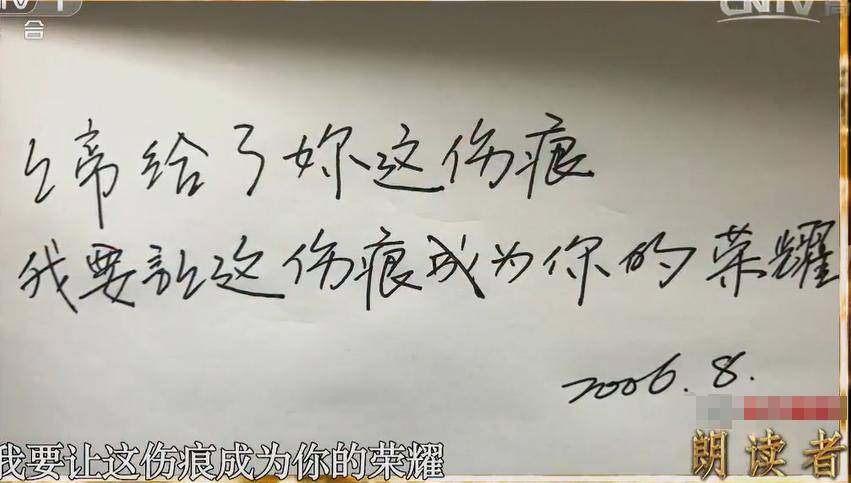 合
CNTV高
上帝给了妳这伤痕
我要让这伤痕成为你的荣耀
2006.8.
我要让这伤痕成为你的荣耀
朗读者